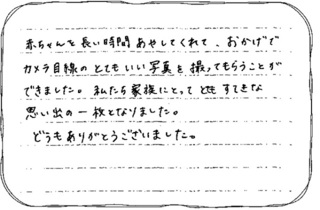 赤ちゃんを長い時間あやしてくれて、おかげで
カメラ目線のとてもいい写真を撮ってもらうことが
できました。私たち家族にとってともすてきな
思い出の一枚となりました。
どうもありがとうございました。